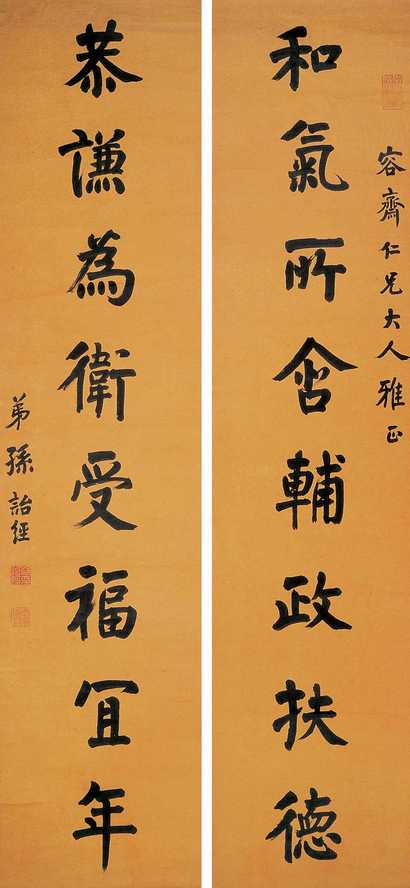 容齋仁兄大人雅正
和氣所舍輔政扶德
恭謙為衛受福宜年
弟孫詒經